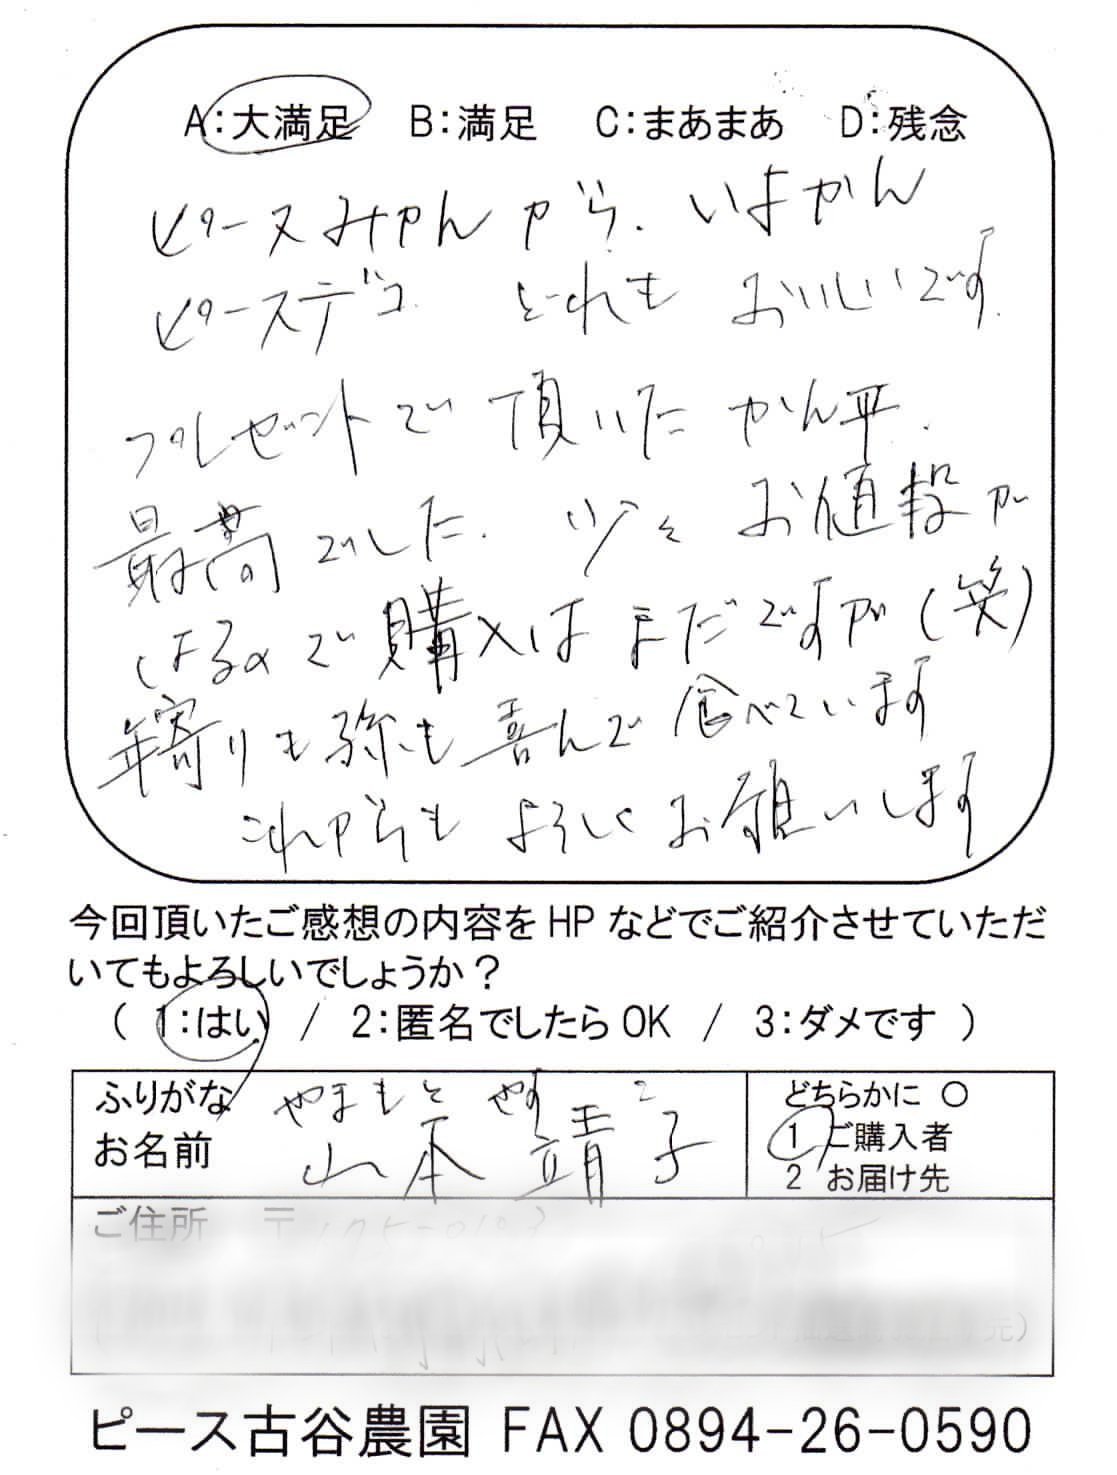 A：大満足　B：満足　C：まあまあ　D：残念
ピースみかんから、いよかん
ピースデコ、どれもおいしいです。
プレゼントで頂いたかん平、
最高でした。少々お値段が
はるので購入はまだですが（笑）
年寄りも孫も喜んで食べています
これからもよろしくお願いします
今回頂いたご感想の内容をHPなどでご紹介させていただ
いてもよろしいでしょうか？
（ 1：はい / 2：匿名でしたらOK / 3：ダメです ）
ふりがな　やまもと　やすこ
お名前　山本　靖子
どちらかに ○
1 ご購入者
2 お届け先
ご住所　〒
ピース古谷農園 FAX 0894-26-0590